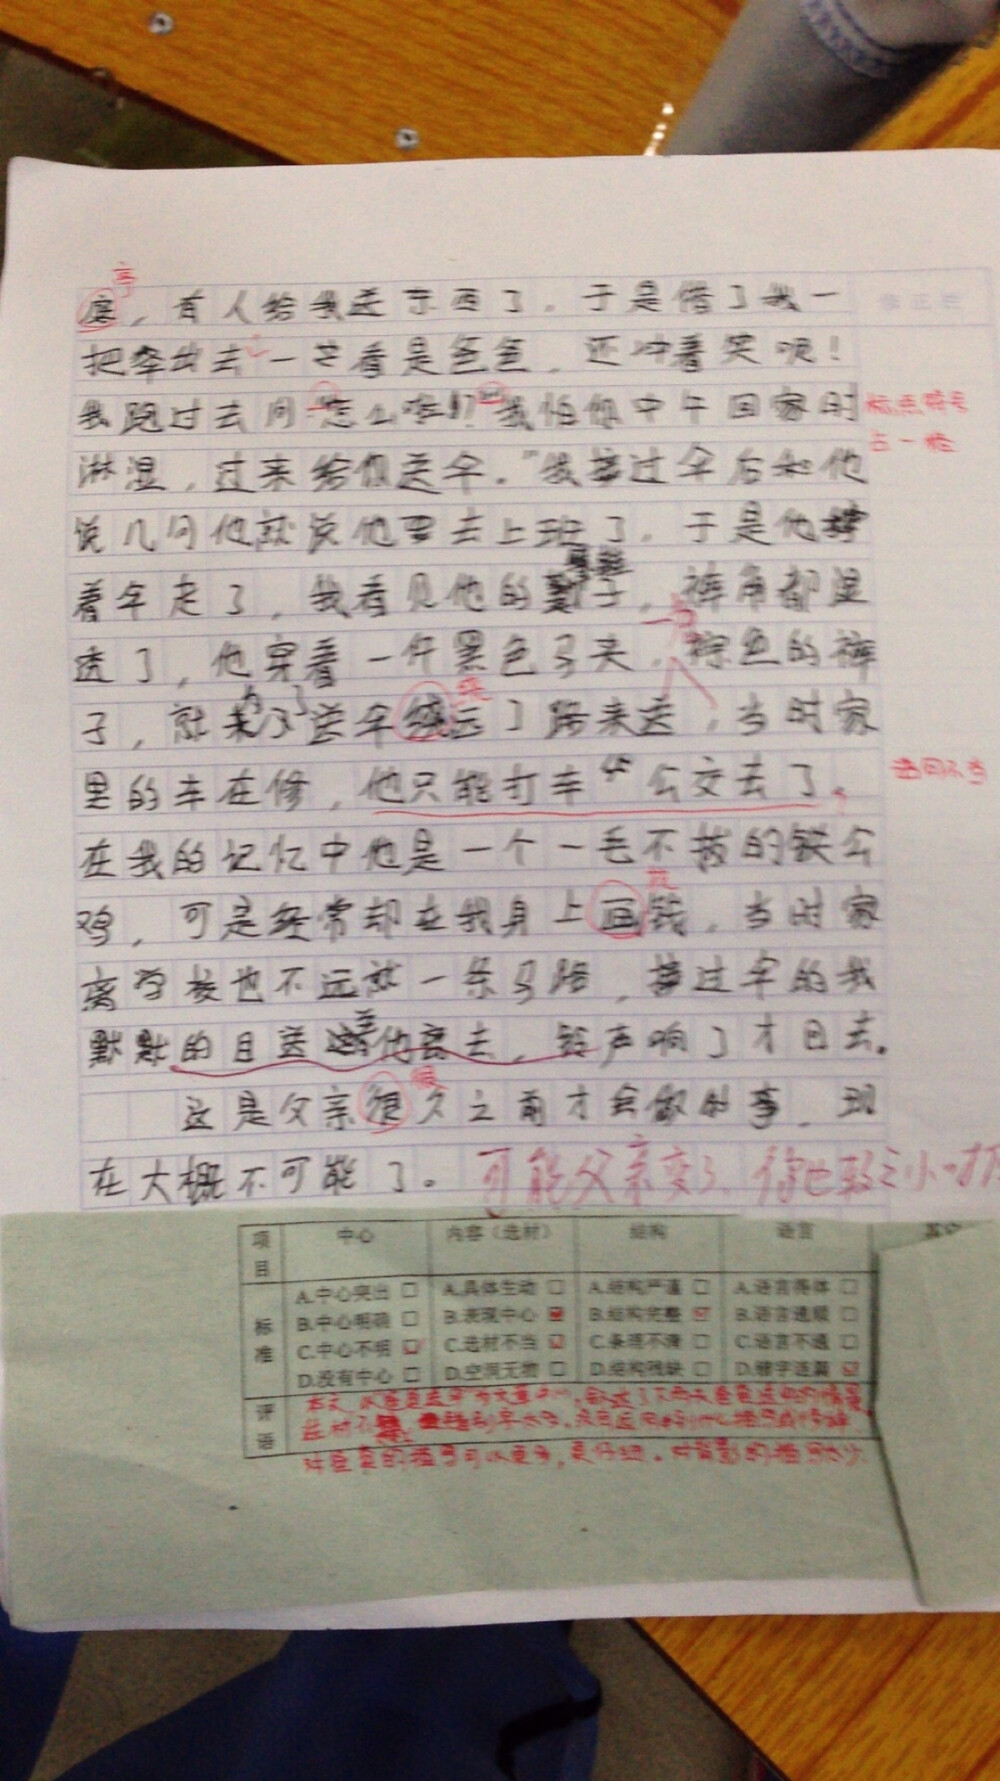 亭
庭，有人给我送东西了，于是借了我一
把伞出去一芒看是爸爸，还冲着笑呢！
我跑过去问 怎么啦!? 我怕你中午回家时
标点符号
占一格
淋湿，过来给你送伞。"我接过伞后和他
说几句他就说他要去上班了，于是他撑
着伞走了，我看见他的 子，裤角都湿
透了，他穿着一件黑色马夹，棕色的裤
子，就为了送伞绕远了路来送，当时家
里的车在修，他只能打车 公交去了。
在我的记忆中他是一个一毛不拔的铁公
鸡，可是经常却在我身上画钱，当时家
花
离学校也不远就一条马路，接过伞的我
默默的目送着他离去，铃声响了才回去。
这是父亲很久之前才会做的事，现
很
在大概不可能了。 可能父亲变了，你也
项目 中心 内容（选材） 结构 语言
标准
A.中心突出□ A.具体生动□ A.结构严谨□ A.语言得体□
B.中心明确□ B.表现中心 B.结构完整 B.语言通顺□
C.中心不明 C.选材不当 C.条理不清□ C.语言不通□
D.没有中心□ D.空洞无物□ D.结构残缺□ D.错字连篇
评语
对 的描写可以更多，更仔细。对背影的描写太少